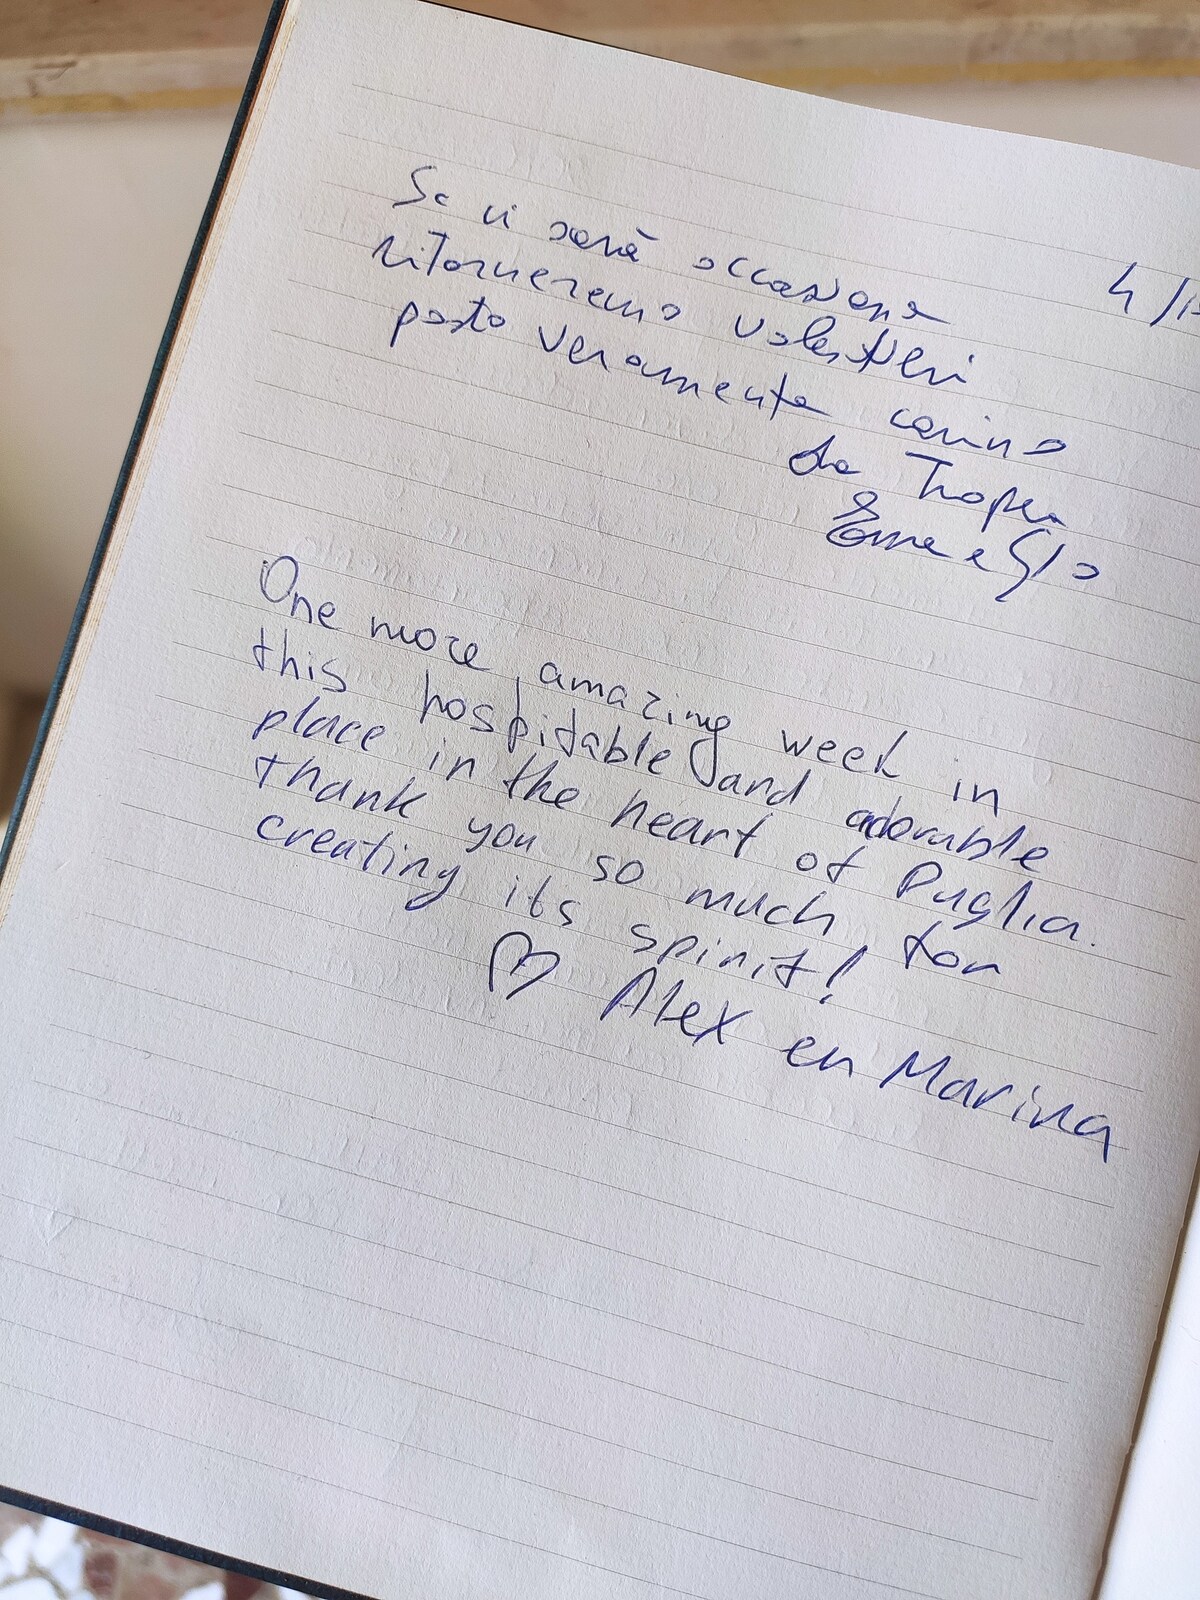 Se vi sarà occasione
ritorneremo volentieri
4/1
posto veramente carino
da Tropea
e Gio
One more amazing week in
this hospitable and adorable
place in the heart of Puglia.
thank you so much for
creating its spirit!
♡ Alex en Marina